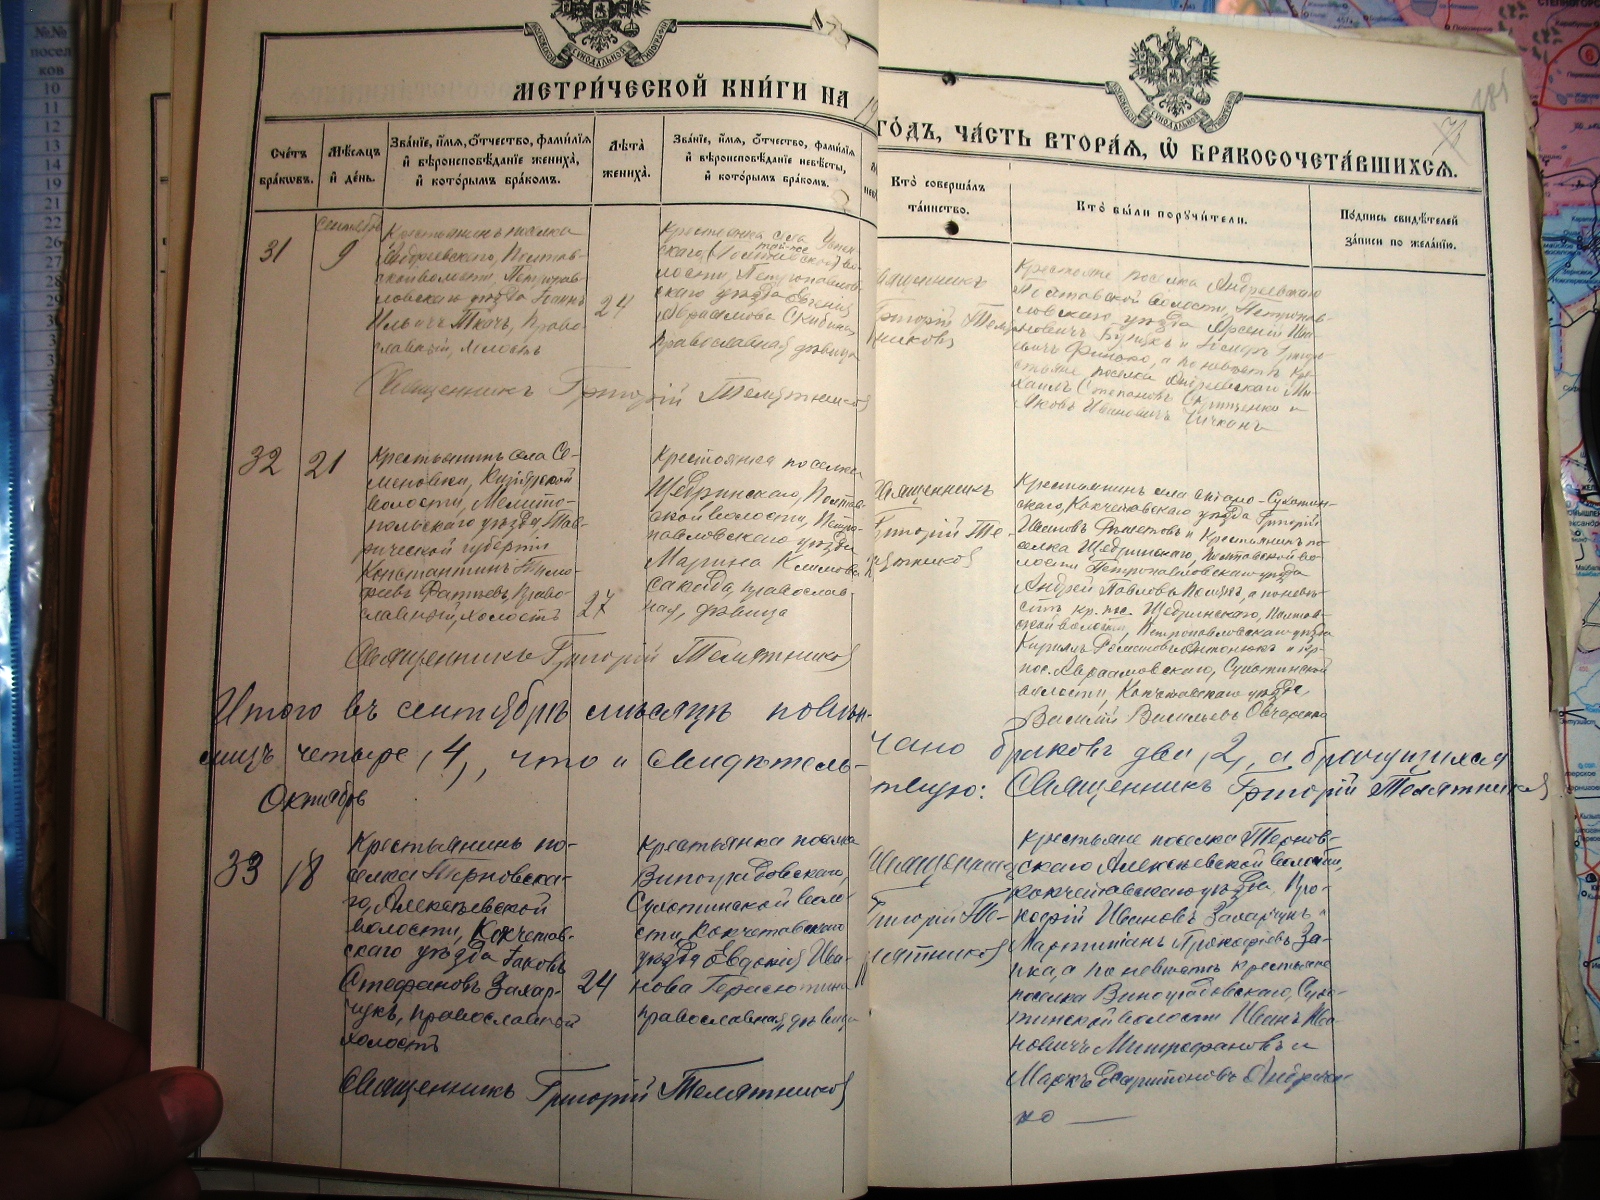 МЕТРИ́ЧЕСКОЙ КНИ́ГИ НА
ГО́ДЪ, ЧА́СТЬ ВТОРА́Я, Ѡ БРАКОСОЧЕТА́ВШИХСЯ.
Сче́тъ бра́кѡвъ.
Мѣ́сяцъ и҆ де́нь.
Зва́нїе, и҆́мя, ѻ҆́тчество, фами́лїя и҆ вѣроисповѣ́данїе жениха̀, и҆ кото́рымъ бра́комъ.
Лѣ́та жениха̀.
Зва́нїе, и҆́мя, ѻ҆́тчество, фами́лїя и҆ вѣроисповѣ́данїе невѣ́сты, и҆ кото́рымъ бра́комъ.
Кто̀ соверша́лъ та́инство.
Кто̀ бы́ли поручи́тели.
По́дпись свидѣ́телей за́писи по жела́нїю.
Сентябрь
31
9
Крестьянинъ поселка
Андреевскаго, Полтав-
ской волости, Петропав-
ловскаго уѣзда Іоаннъ
Ильичъ Ткачъ, право-
славный, холостъ
24
Крестьянка села Успен-
скаго, (Полтавской) во-
той-же
лости, Петропавлов-
скаго уѣзда Евгенія
Абрамова Скибина,
православная, дѣвица
Священникъ
Григорій Телят-
никовъ
Крестьяне поселка Андреевскаго
Полтавской волости, Петропав-
ловскаго уѣзда Арсеній Ива-
новичъ
а по невѣстѣ кре-
стьяне поселка Андреевскаго Ми-
хаилъ Степановъ и
Яковъ Ивановичъ Чичканъ
Священникъ Григорій Телятниковъ
32
21
Крестьянинъ села Се-
меновки, Кизіярской
волости, Мелито-
польскаго уѣзда Тав-
рической губерніи
Константинъ Тимо-
феевъ православный, холостъ
27
Крестьянка поселка
Щедринскаго, Полтав-
ской волости, Петро-
павловскаго уѣзда
Марина Климова
православ-
ная, дѣвица
Священникъ
Григорій Те-
лятниковъ
Крестьянинъ села
Кокчетавскаго уѣзда Григорій
Ивановъ и крестьянинъ по-
селка Щедринскаго, Полтавской во-
лости Петропавловскаго уѣзда
Андрей Павловъ а по невѣ-
стѣ кр. пос. Щедринскаго, Полтав-
ской волости, Петропавловскаго уѣзда
Кириллъ Романовъ Антонюкъ и кр.
пос. Авраамовскаго, Сухотинской
волости, Кокчетавскаго уѣзда,
Василій Васильевъ Овчаренко
Священникъ Григорій Телятниковъ
Итого въ сентябрѣ мѣсяцѣ повѣн-
чано браковъ два, 2, а брачущихся
лицъ четыре, 4, что и свидѣтель-
ствую: Священникъ Григорій Телятниковъ
Октябрь
33
18
Крестьянинъ по-
селка Терновска-
го, Алексѣевской
волости, Кокчетав-
скаго уѣзда Іаковъ
Стефановъ Захар-
чукъ, православный
холостъ
24
Крестьянка поселка
Виноградовскаго,
Сухотинской воло-
сти, Кокчетавскаго
уѣзда Евдокія Ива-
нова Герасютина
православная, дѣвица
Священникъ
Григорій Те-
лятниковъ
Крестьяне поселка Тернов-
скаго Алексѣевской волости,
Кокчетавскаго уѣзда, Про-
кофій Ивановъ Захарчукъ и
Мартиніанъ Прокофіевъ За-
а по невѣстѣ крестьяне
поселка Виноградовскаго, Сухо-
тинской волости Иванъ Ива-
новичъ Митрофановъ и
Маркъ Харитоновъ Андреен-
ко —
Священникъ Григорій Телятниковъ